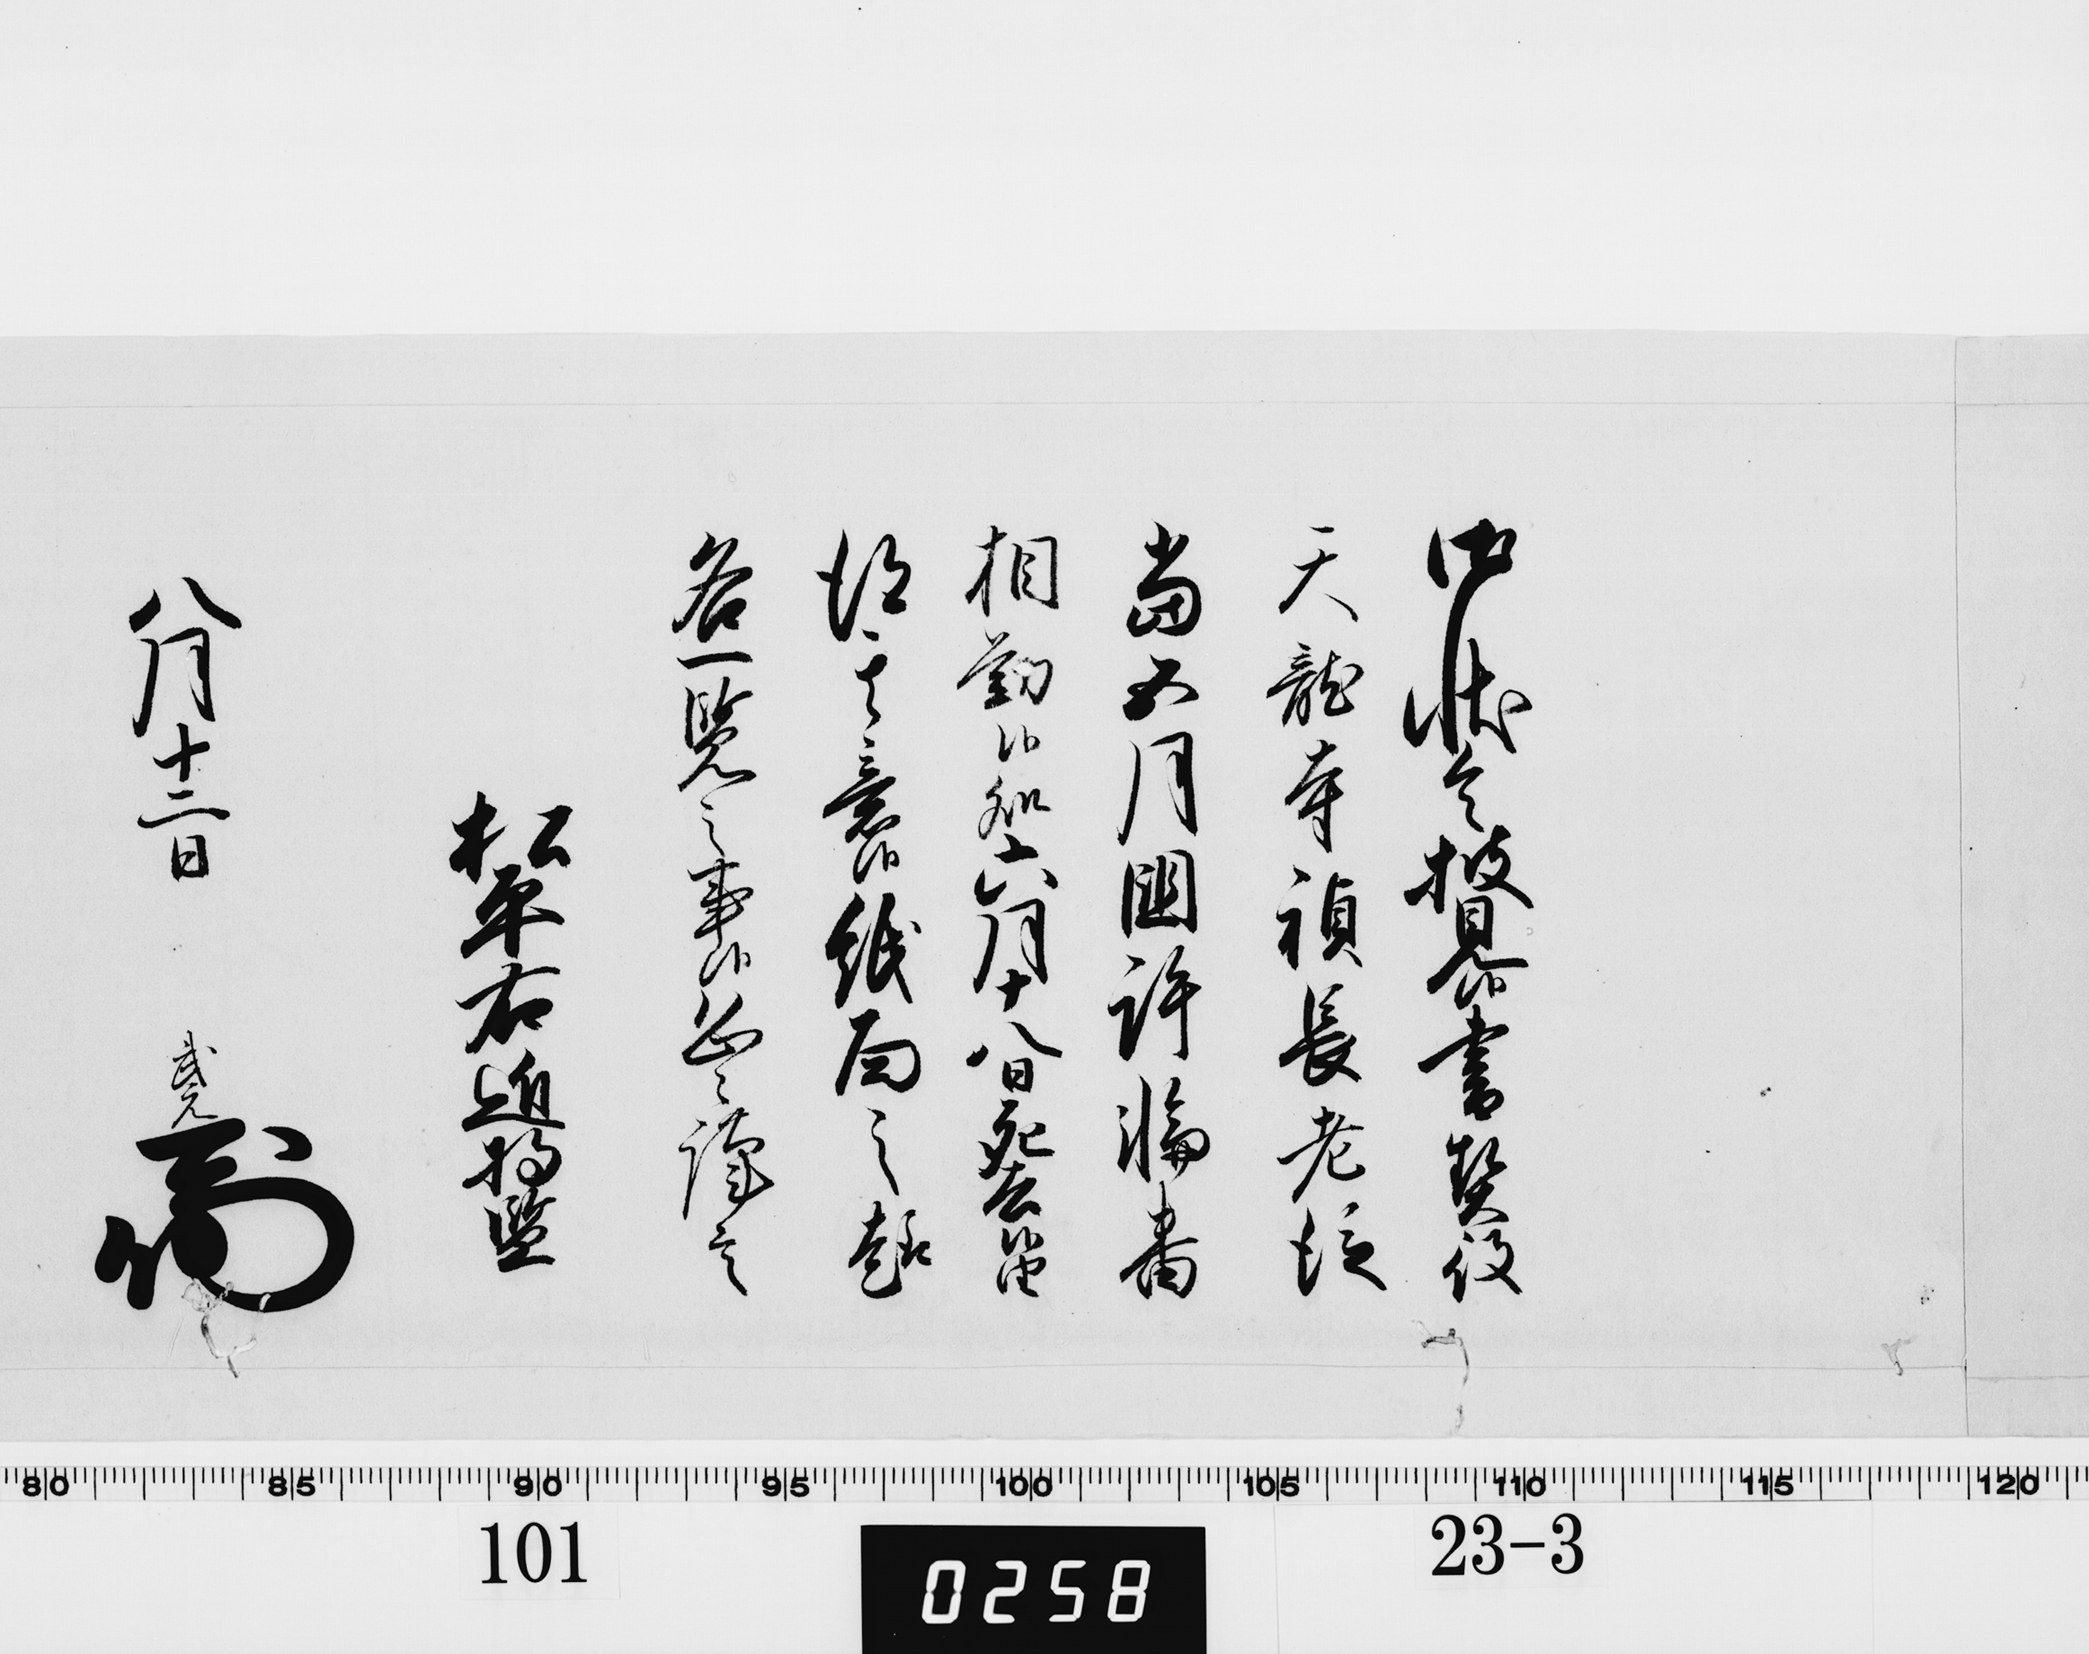 御状令披見候書契役
天龍寺禎長老従
當五月國許輪番
相勤候処六月十八日死去候由
得其意候紙面之趣
各一覧之事候恐々謹言
松平右近将監
八月十二日 武元
80 85 90 95 100 105 110 115 120
101 0258 23-3